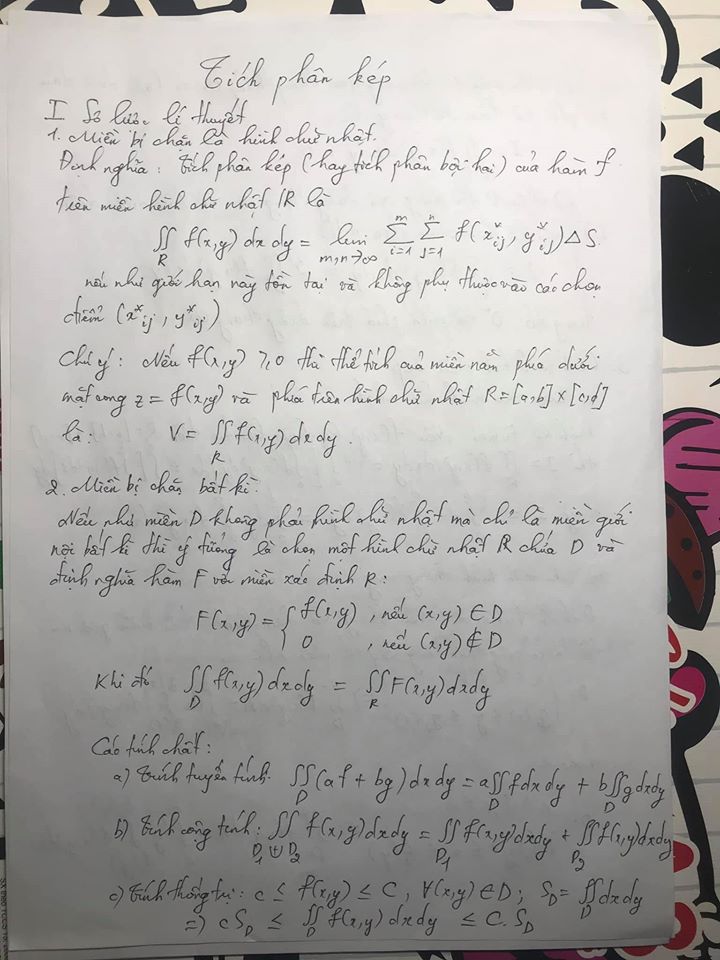 Tích phân kép
I Sơ lược lí thuyết
1. Miền bị chặn là hình chữ nhật.
Định nghĩa: Tích phân kép (hay tích phân bội hai) của hàm f
trên miền hình chữ nhật R là
∬_R f(x,y) dx dy = lim_{m,n→∞} ∑_{i=1}^{m} ∑_{j=1}^{n} f(x*_{ij}, y*_{ij}) ΔS.
nếu như giới hạn này tồn tại và không phụ thuộc vào các chọn
điểm (x*_{ij}, y*_{ij})
Chú ý: Nếu f(x,y) ≥ 0 thì thể tích của miền nằm phía dưới
mặt cong z = f(x,y) và phía trên hình chữ nhật R = [a,b] × [c,d]
là: V = ∬_R f(x,y) dx dy.
2. Miền bị chặn bất kì.
Nếu như miền D không phải hình chữ nhật mà chỉ là miền giới
nội bất kì thì ý tưởng là chọn một hình chữ nhật R chứa D và
định nghĩa hàm F với miền xác định R:
F(x,y) = { f(x,y), nếu (x,y) ∈ D
0, nếu (x,y) ∉ D
Khi đó ∬_D f(x,y) dx dy = ∬_R F(x,y) dx dy
Các tính chất:
a) Tính tuyến tính: ∬_D (af + bg) dx dy = a∬_D f dx dy + b∬_D g dx dy
b) Tính cộng tính: ∬_{D_1 ⊎ D_2} f(x,y) dx dy = ∬_{D_1} f(x,y) dx dy + ∬_{D_2} f(x,y) dx dy
c) Tính thống trị: c ≤ f(x,y) ≤ C, ∀(x,y) ∈ D; S_D = ∬_D dx dy
=> c S_D ≤ ∬_D f(x,y) dx dy ≤ C. S_D